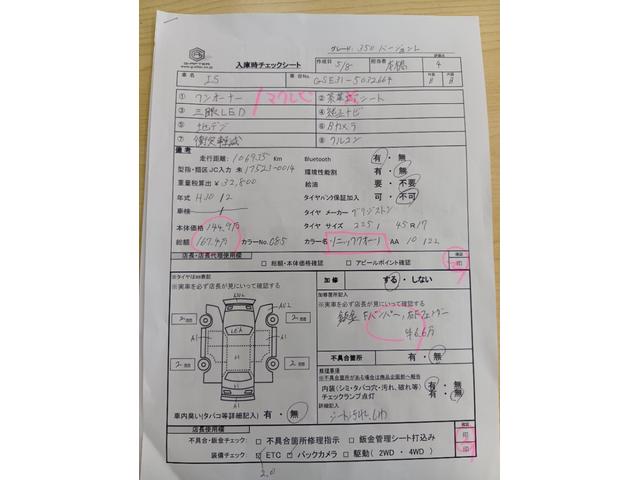 グレード: 350 バージョンL
G-AFTER
入庫時チェックシート
作成日 5/8 担当者 本橋 評価点 4
車名 IS 車台No. GSE31-5032664 外装 B 内装 B
① ワンオーナー マクレビ ② 茶革シート
③ 三眼LED ④ 純正ナビ
⑤ 地デジ ⑥ Bカメラ
⑦ 衝突軽減 ⑧ クルコン
備考
走行距離: 106935 Km Bluetooth 有・無
型指・類区JC入力 未 17523-0014 環境性能割 有・無
重量税算出 ¥32,800 給油 要・不要
年式 H30 12 タイヤパンク保証加入 可・不可
車検 タイヤ メーカー ブリジストン
本体価格 144.9万 タイヤ サイズ 225/ 45 R17
総額 167.4万 カラーNo. 085 カラー名 ソニッククオーツ AA 10 122
店長・店長代理使用欄 確認
□ 総額・本体価格確認 □ アピールポイント確認 印
※タイヤは部表記
※実車を必ず店長が見にいって確認する
加修 する・しない
加修箇所記入
※実車を必ず店長が見にいって確認する
鈑金 Fバンパー, 右Fフェンダー
4.6.6万
不具合箇所 有・無
修理事項
※不具合箇所がある場合は商品企画部へ報告
内装(シミ・タバコ穴・汚れ、破れ等) 有・無
チェックランプ点灯 有・無
詳細記入
シート汚れ、しわ
車内臭い(タバコ等詳細記入) 有・無
店長使用欄 確認
不具合・鈑金チェック: □ 不具合箇所修理指示 □ 鈑金管理シート打込み 印
装備チェック: ☑ ETC □ バックカメラ □ 駆動(2WD・4WD) 印
2.0